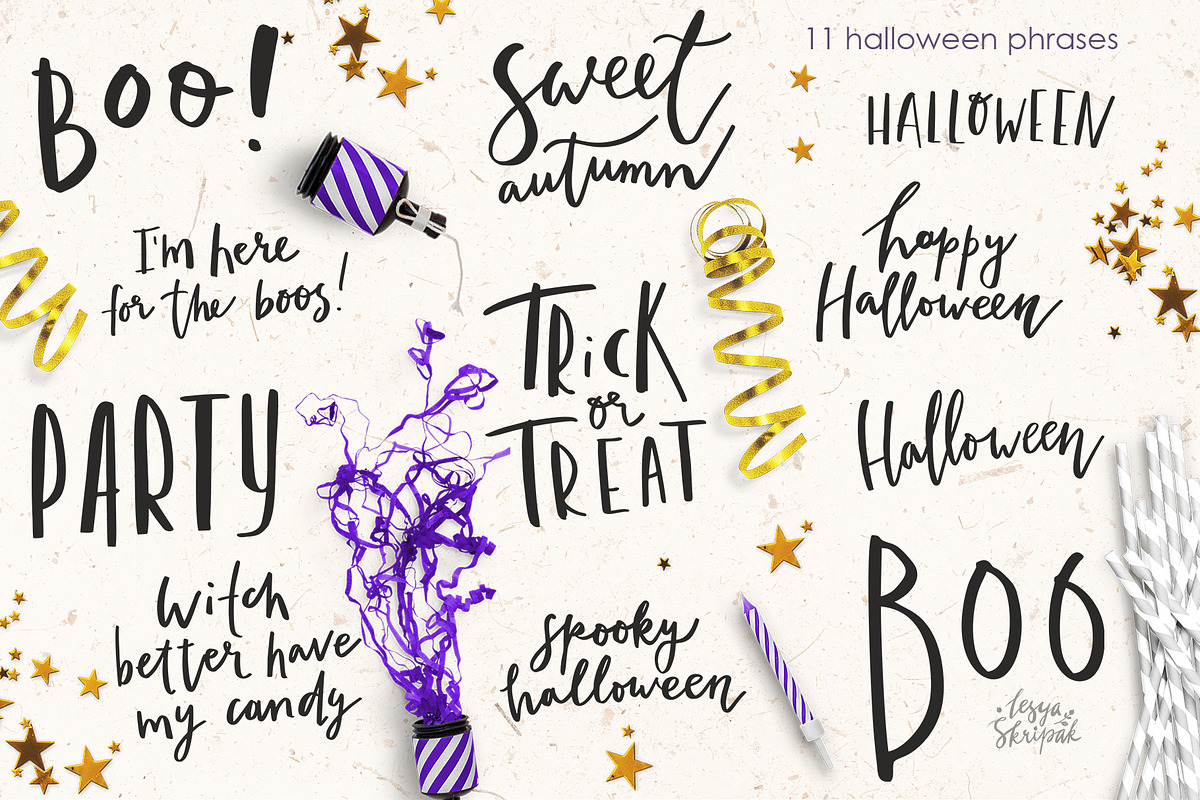 11 halloween phrases
Boo!
sweet
autumn
HALLOWEEN
I'm here
for the boos!
happy
Halloween
TRicK
or
TREAT
PARTY
Halloween
witch
better have
my candy
spooky
halloween
Boo
lesya
Skripak